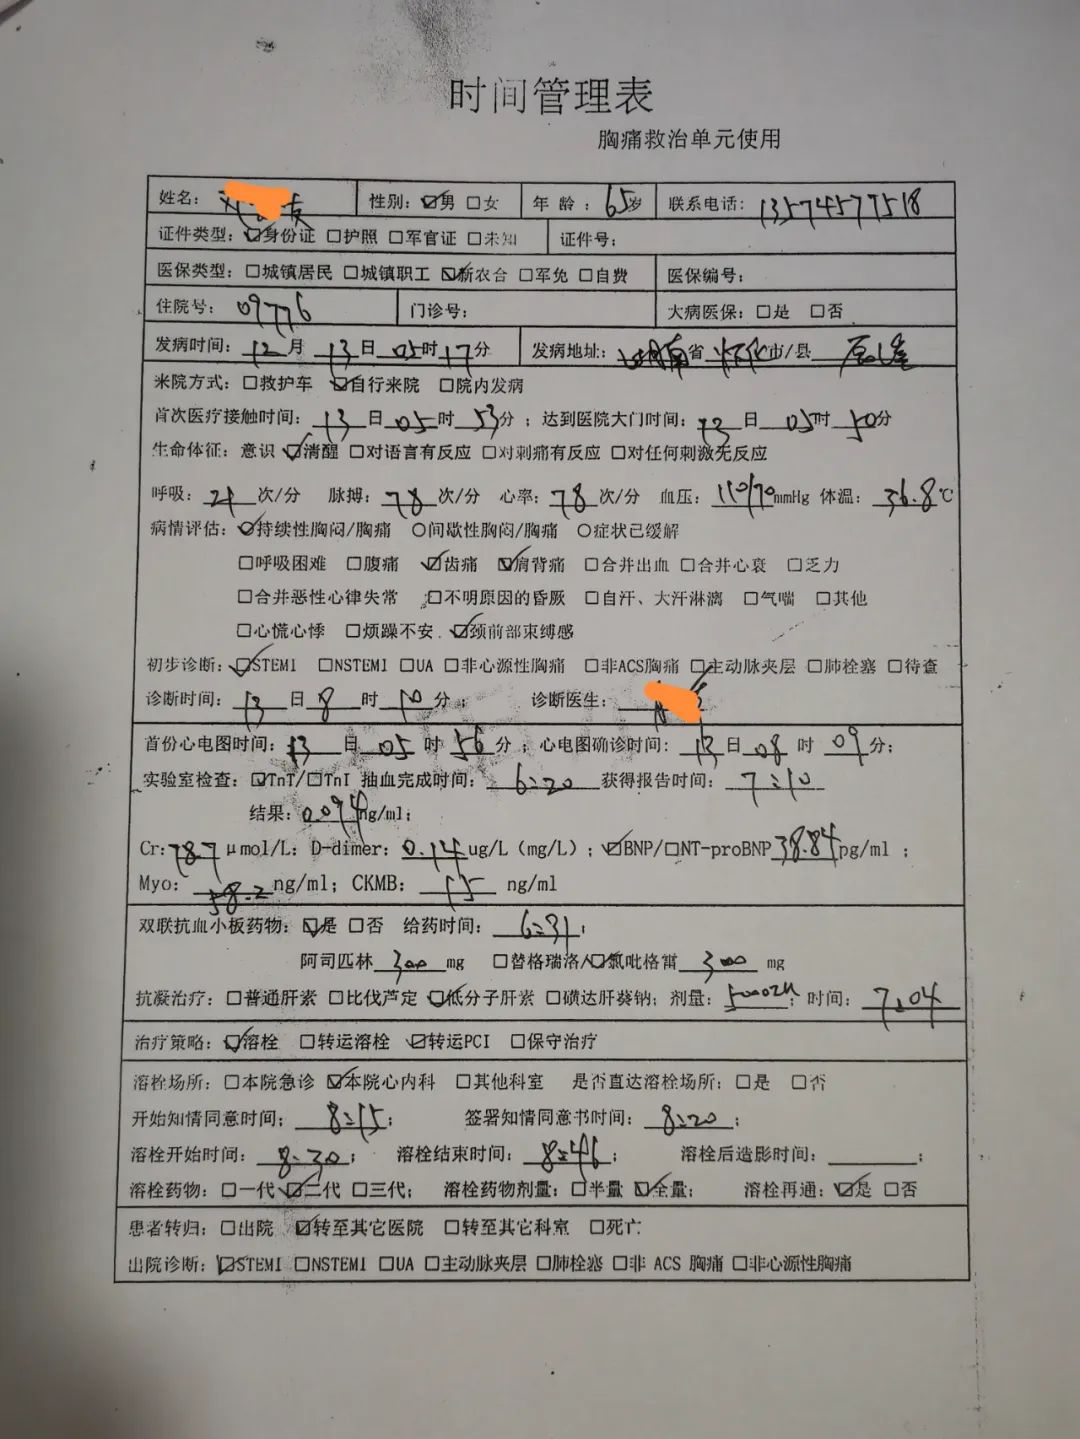 时间管理表
胸痛救治单元使用
姓名： 友 性别：☑男 □女 年 龄：65岁 联系电话：13574577518
证件类型：☑身份证 □护照 □军官证 □未知 证件号：
医保类型：□城镇居民 □城镇职工 ☑新农合 □军免 □自费 医保编号：
住院号：09776 门诊号： 大病医保：□是 □否
发病时间：12月13日05时17分 发病地址：湖南省怀化市/县
来院方式：□救护车 ☑自行来院 □院内发病
首次医疗接触时间：13日05时53分；达到医院大门时间：13日05时50分
生命体征：意识 ☑清醒 □对语言有反应 □对刺痛有反应 □对任何刺激无反应
呼吸：21次/分 脉搏：78次/分 心率：78次/分 血压：110/70mmHg 体温：36.8℃
病情评估：☑持续性胸闷/胸痛 ○间歇性胸闷/胸痛 ○症状已缓解
□呼吸困难 □腹痛 ☑齿痛 ☑肩背痛 □合并出血 □合并心衰 □乏力
□合并恶性心律失常 □不明原因的昏厥 □自汗、大汗淋漓 □气喘 □其他
□心慌心悸 □烦躁不安 ☑颈前部束缚感
初步诊断：☑STEMI □NSTEMI □UA □非心源性胸痛 □非ACS胸痛 □主动脉夹层 □肺栓塞 □待查
诊断时间：13日8时10分 诊断医生：
首份心电图时间：13日05时56分；心电图确诊时间：13日08时09分；
实验室检查：☑TnT/□TnI 抽血完成时间：6:20 获得报告时间：7:10
结果：0.094ng/ml；
Cr：78.7μmol/L；D-dimer：0.14ug/L（mg/L）；☑BNP/□NT-proBNP 38.84pg/ml；
Myo：58.2ng/ml；CKMB：15 ng/ml
双联抗血小板药物：☑是 □否 给药时间：6:31；
阿司匹林 300 mg □替格瑞洛 ☑氯吡格雷 300 mg
抗凝治疗：□普通肝素 □比伐芦定 ☑低分子肝素 □磺达肝葵钠；剂量：5000zu；时间：7:04
治疗策略：☑溶栓 □转运溶栓 ☑转运PCI □保守治疗
溶栓场所：□本院急诊 ☑本院心内科 □其他科室 是否直达溶栓场所：□是 □否
开始知情同意时间：8:15； 签署知情同意书时间：8:20；
溶栓开始时间：8:30； 溶栓结束时间：8:46； 溶栓后造影时间： ；
溶栓药物：□一代 ☑二代 □三代； 溶栓药物剂量：□半量 ☑全量； 溶栓再通：☑是 □否
患者转归：□出院 ☑转至其它医院 □转至其它科室 □死亡
出院诊断：☑STEMI □NSTEMI □UA □主动脉夹层 □肺栓塞 □非 ACS 胸痛 □非心源性胸痛